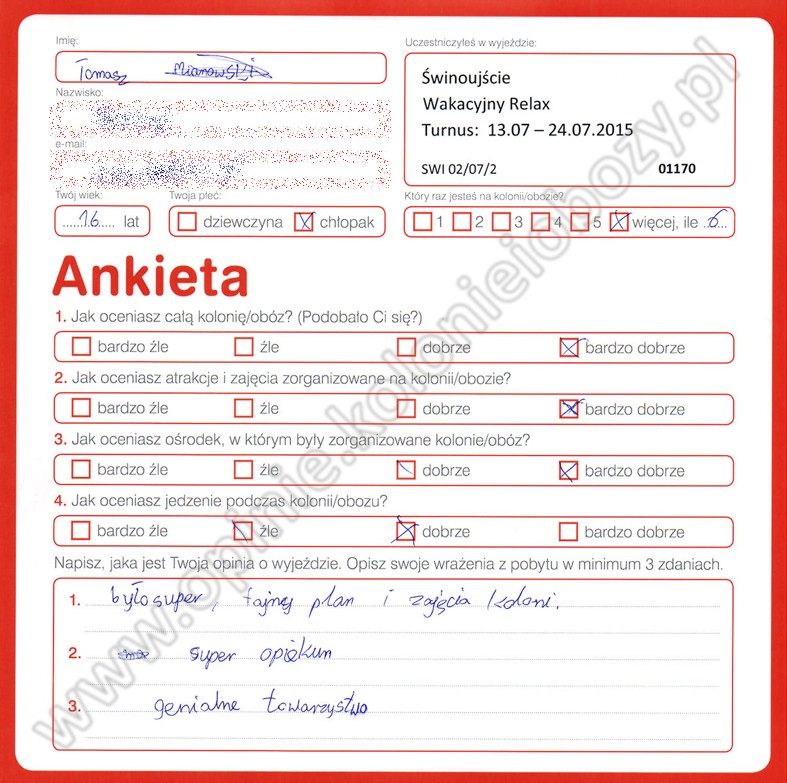 Imię:
Uczestniczyłeś w wyjeździe:
Tomasz
Świnoujście
Wakacyjny Relax
Turnus: 13.07 – 24.07.2015
SWI 02/07/2 01170
Nazwisko:
e-mail:
Twój wiek: Twoja płeć: Który raz jesteś na kolonii/obozie?
16 lat dziewczyna chłopak 1 2 3 4 5 więcej, ile 6
Ankieta
1. Jak oceniasz całą kolonię/obóz? (Podobało Ci się?)
bardzo źle źle dobrze bardzo dobrze
2. Jak oceniasz atrakcje i zajęcia zorganizowane na kolonii/obozie?
bardzo źle źle dobrze bardzo dobrze
3. Jak oceniasz ośrodek, w którym były zorganizowane kolonie/obóz?
bardzo źle źle dobrze bardzo dobrze
4. Jak oceniasz jedzenie podczas kolonii/obozu?
bardzo źle źle dobrze bardzo dobrze
Napisz, jaka jest Twoja opinia o wyjeździe. Opisz swoje wrażenia z pobytu w minimum 3 zdaniach.
1. było super, fajny plan i zajęcia koloni.
2. super opiekun
3. genialne towarzystwo
www.opinie.kolonieiobozy.pl